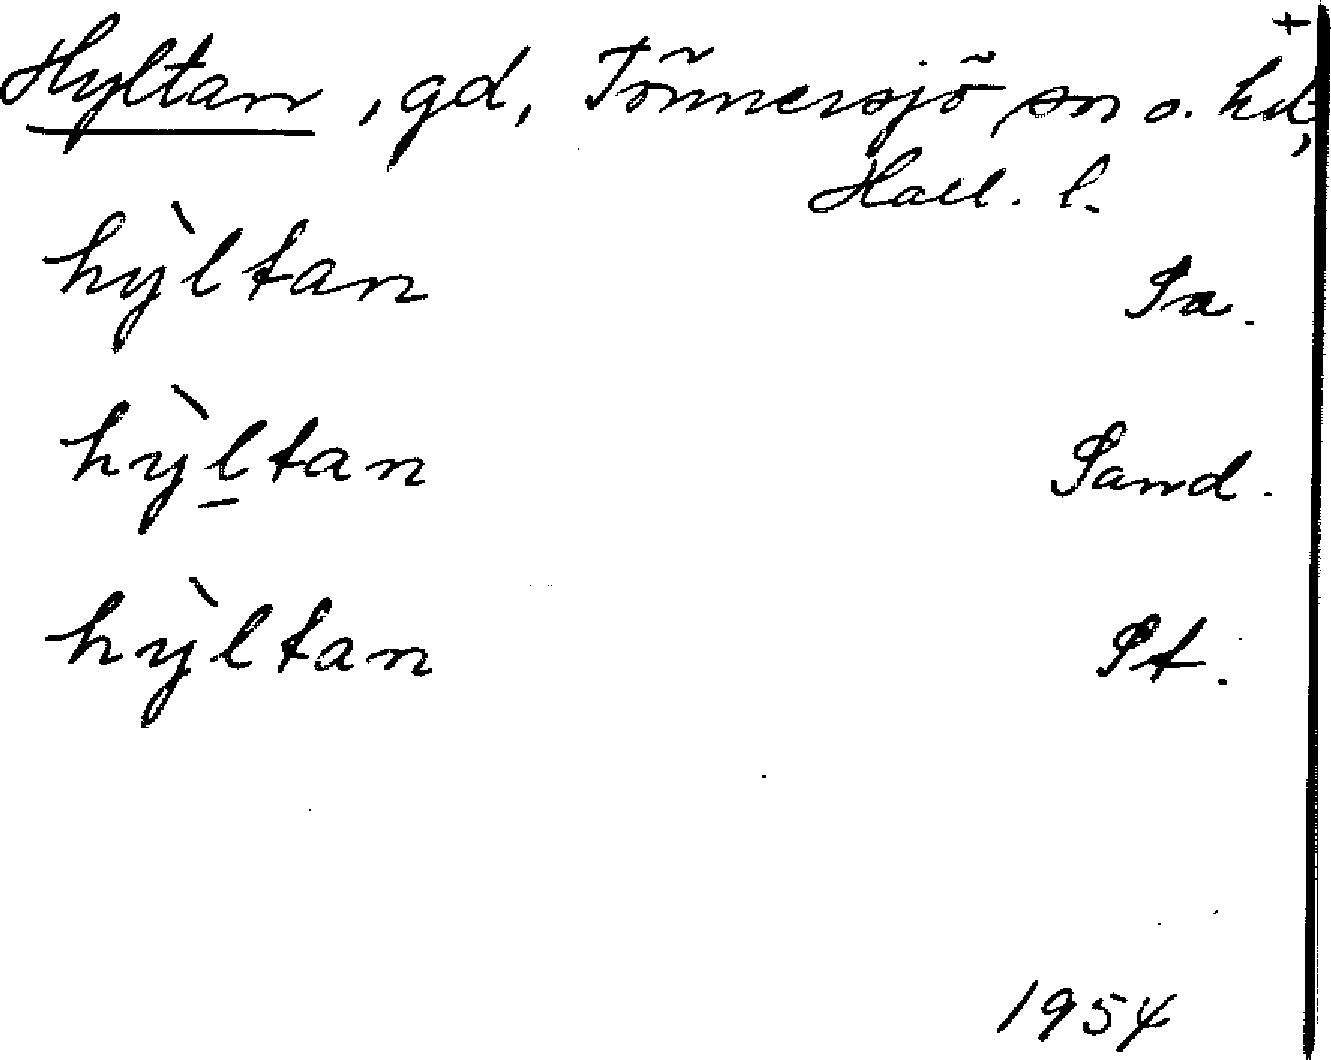 +
Hyltan, gd, Tönnersjö sn o. hd,
Hall. l.
hỳltan Sa.
hỳl̲tan Sand.
hỳltan St.
1954